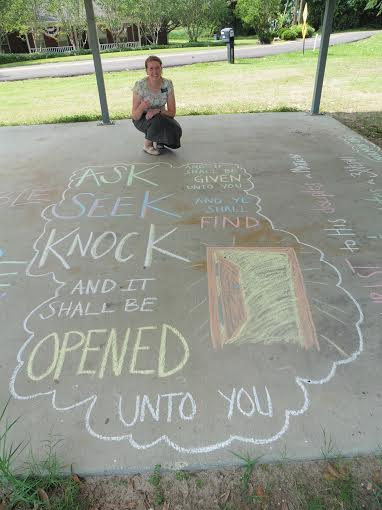 ASK AND IT
SHALL BE
GIVEN
UNTO YOU
SEEK AND YE
SHALL
FIND
KNOCK
AND IT
SHALL BE
OPENED
UNTO YOU